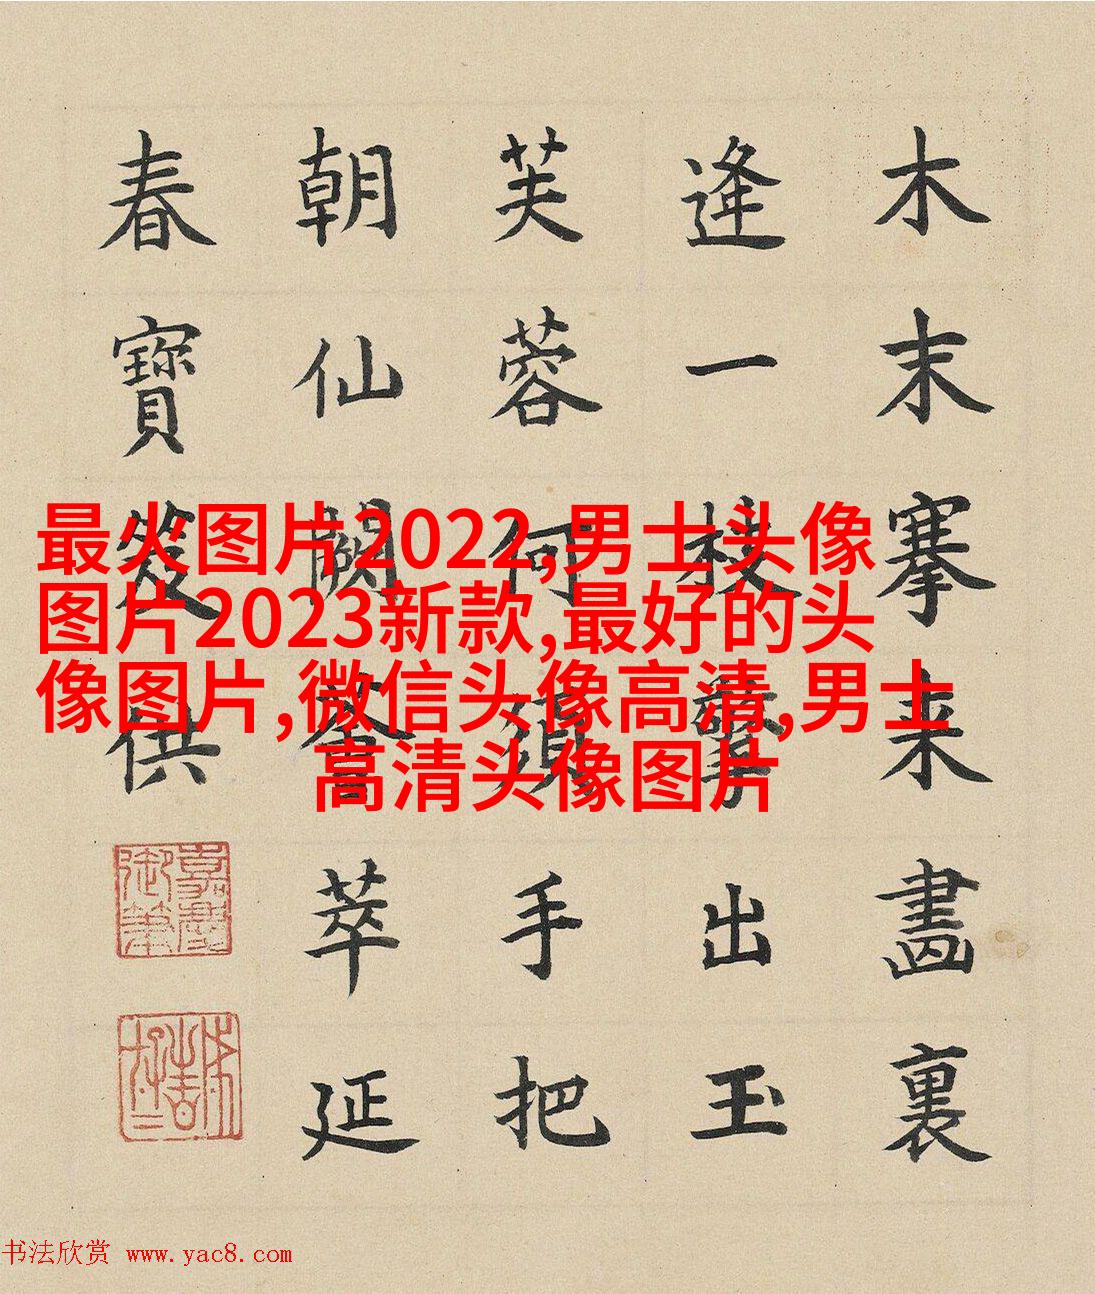 木末搴来畫裏
逢一枝擎出玉
芙蓉何須手把
朝仙闕萃延
春寶笈供
嘉慶
御筆
最火图片2022,男士头像
图片2023新款,最好的头
像图片,微信头像高清,男士
高清头像图片
书法欣赏 www.yac8.com